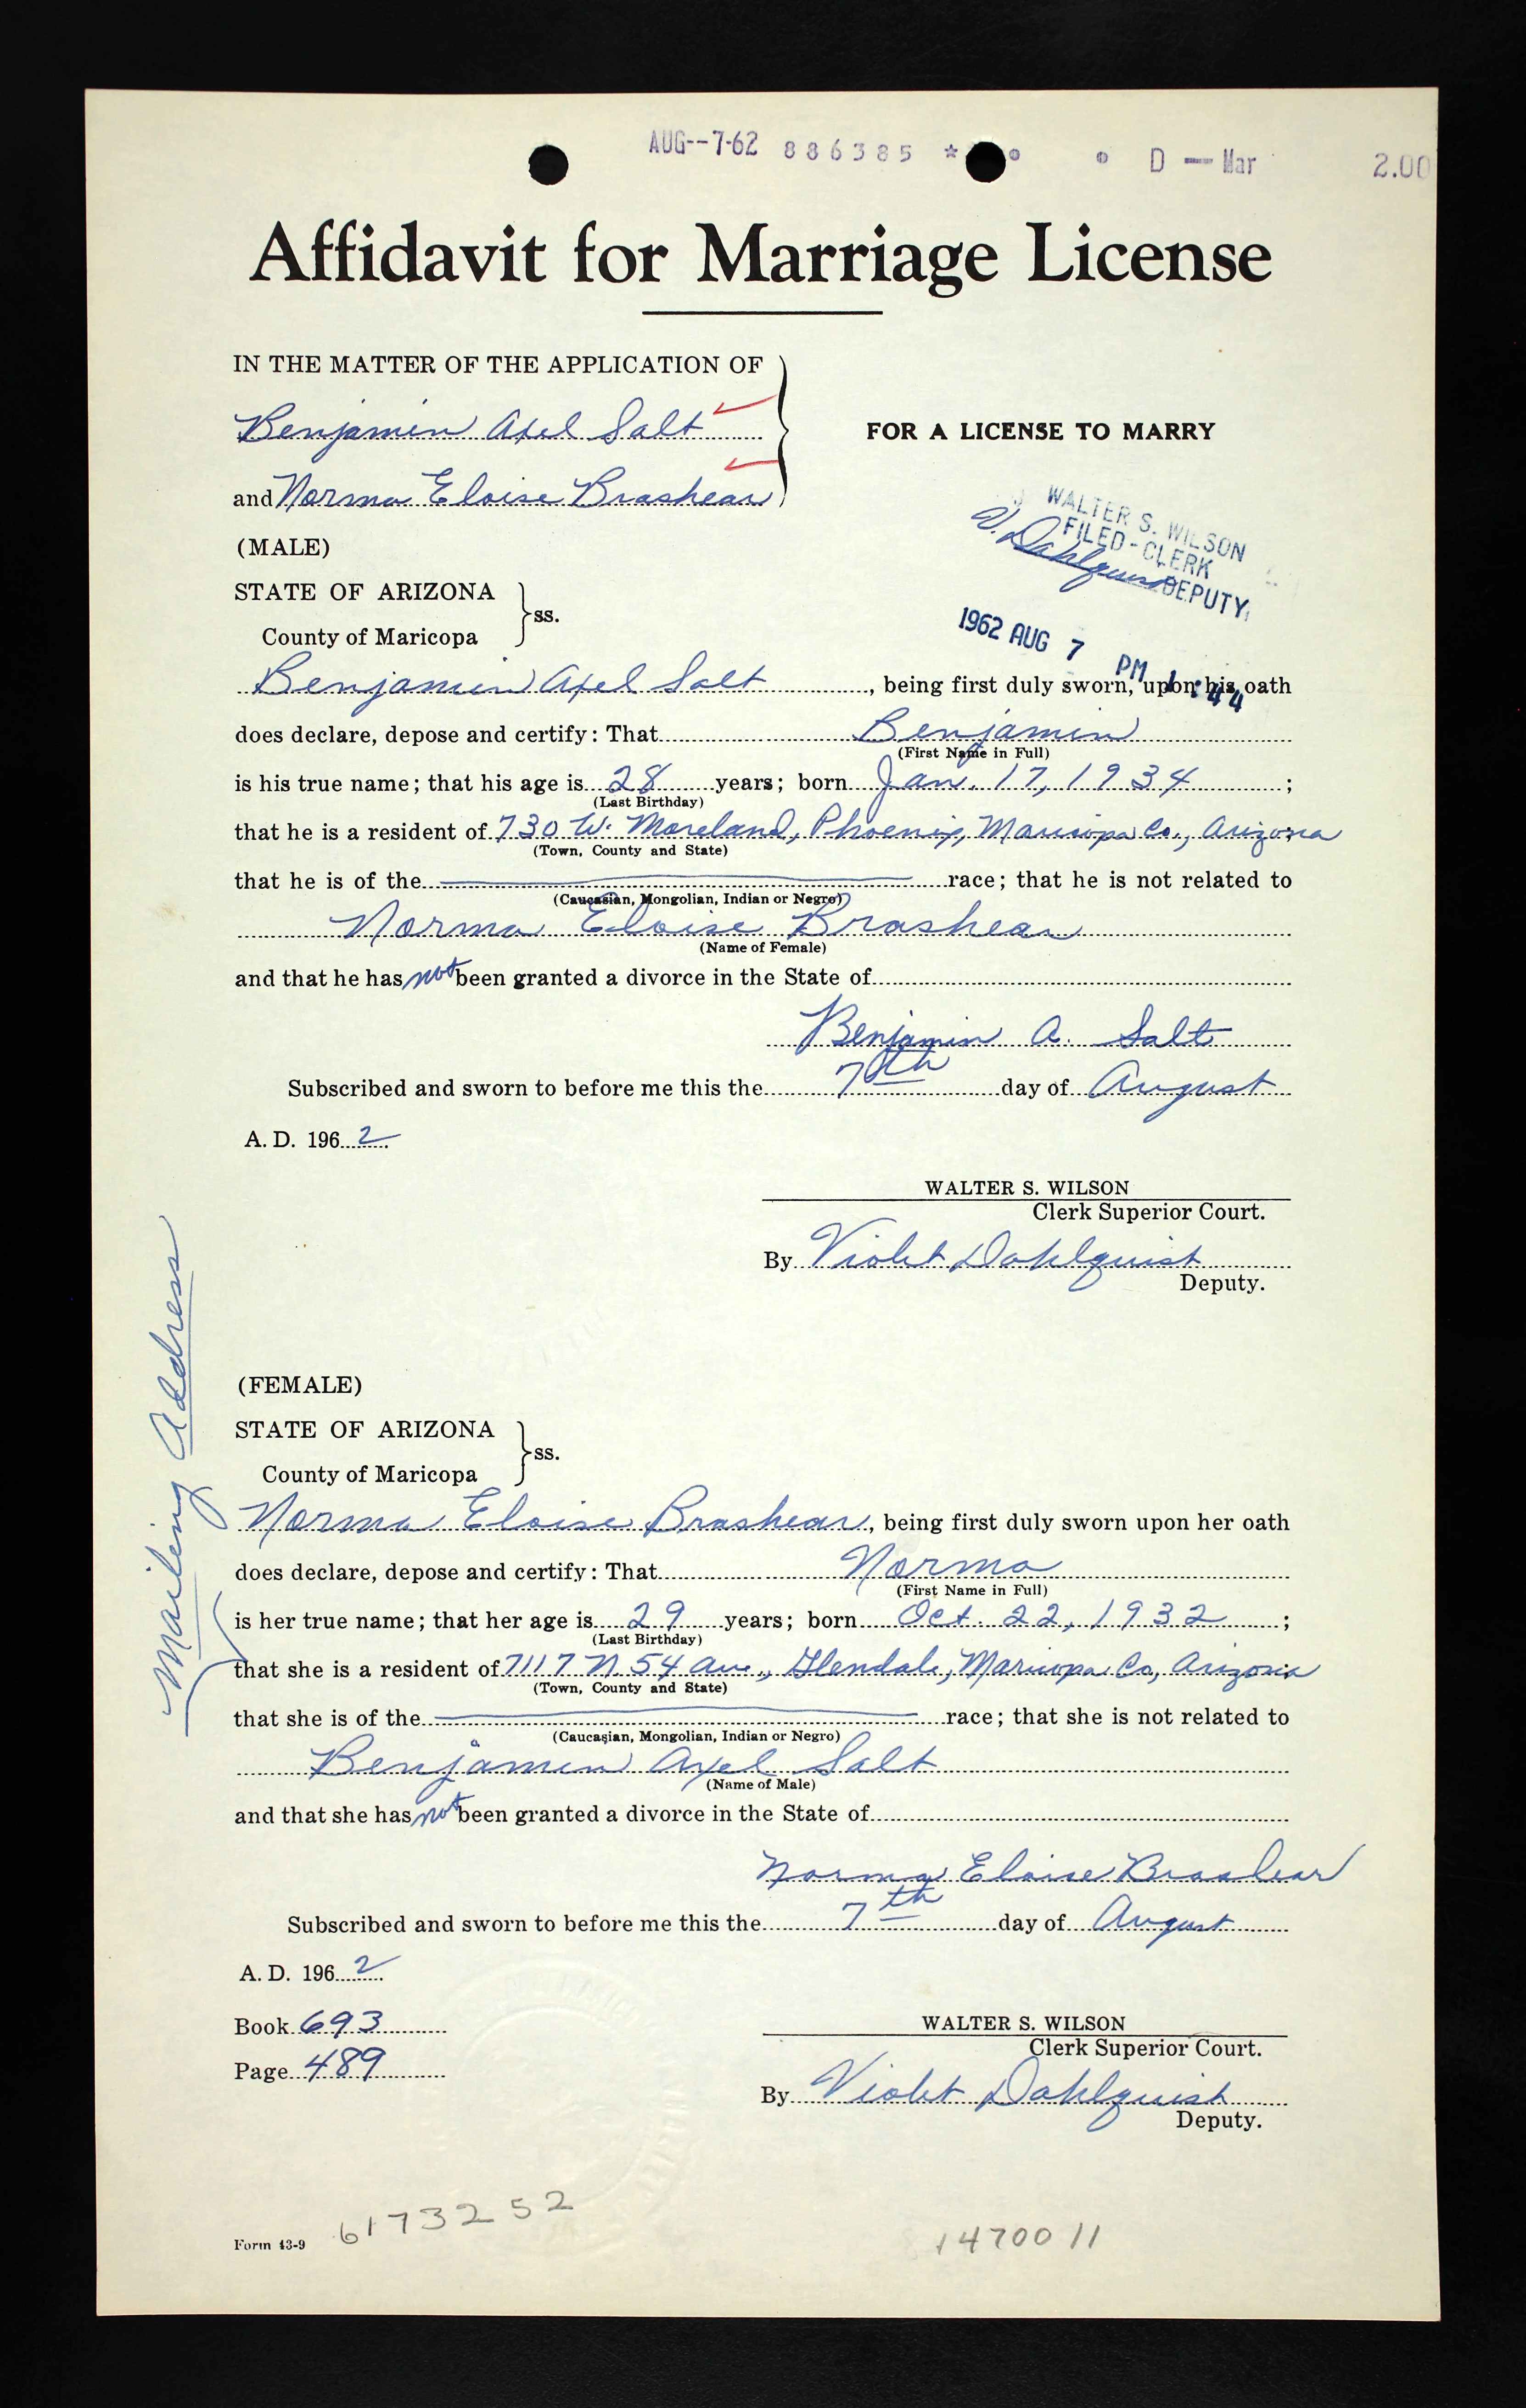 AUG--7-62 886385 * D — Mar 2.00
Affidavit for Marriage License
IN THE MATTER OF THE APPLICATION OF
Benjamin Axel Salt
and Norma Eloise Brashear
FOR A LICENSE TO MARRY
WALTER S. WILSON
FILED - CLERK
V. Dahlquist DEPUTY
1962 AUG 7 PM 1:44
(MALE)
STATE OF ARIZONA
County of Maricopa
ss.
Benjamin Axel Salt, being first duly sworn, upon his oath
does declare, depose and certify: That Benjamin
(First Name in Full)
is his true name; that his age is 28 years; born Jan. 17, 1934;
(Last Birthday)
that he is a resident of 730 W. Moreland, Phoenix, Maricopa Co., Arizona
(Town, County and State)
that he is of the race; that he is not related to
(Caucasian, Mongolian, Indian or Negro)
Norma Eloise Brashear
(Name of Female)
and that he has not been granted a divorce in the State of
Benjamin A. Salt
Subscribed and sworn to before me this the 7th day of August
A. D. 1962
WALTER S. WILSON
Clerk Superior Court.
By Violet Dahlquist
Deputy.
Mailing Address
(FEMALE)
STATE OF ARIZONA
County of Maricopa
ss.
Norma Eloise Brashear, being first duly sworn upon her oath
does declare, depose and certify: That Norma
(First Name in Full)
is her true name; that her age is 29 years; born Oct. 22, 1932;
(Last Birthday)
that she is a resident of 7117 N. 54 Ave., Glendale, Maricopa Co, Arizona
(Town, County and State)
that she is of the race; that she is not related to
(Caucasian, Mongolian, Indian or Negro)
Benjamin Axel Salt
(Name of Male)
and that she has not been granted a divorce in the State of
Norma Eloise Brashear
Subscribed and sworn to before me this the 7th day of August
A. D. 1962
Book 693
Page 489
WALTER S. WILSON
Clerk Superior Court.
By Violet Dahlquist
Deputy.
Form 43-9
6173252
1470011